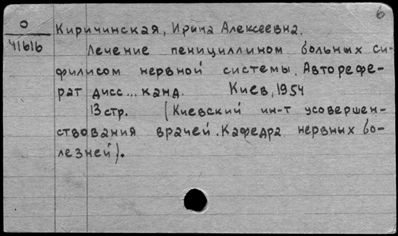 6
О
41616
Киричинская, Ирина Алексеевна.
Лечение пенициллином больных си-
филисом нервной системы. Авторефе-
рат дисс... канд. Киев, 1954
13 стр. (Киевский ин-т усовершен-
ствования врачей. Кафедра нервных бо-
лезней).